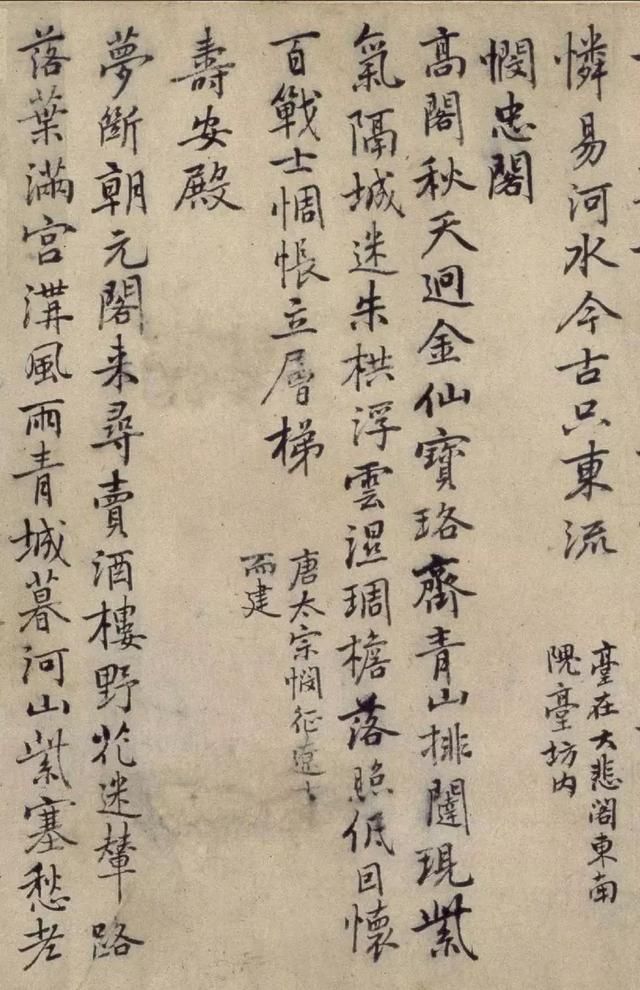 憐易河水今古只東流
臺在大悲閣東南
隗臺坊内
憫忠閣
高閣秋天迥金仙寶珞齊青山排闥現紫
氣隔城迷朱栱浮雲濕琱檐落照低回懷
百戰士惆悵立層梯
唐太宗憫征遼士
而建
壽安殿
夢斷朝元閣来尋賣酒樓野花迷輦路
落葉滿宮溝風雨青城暮河山紫塞愁老